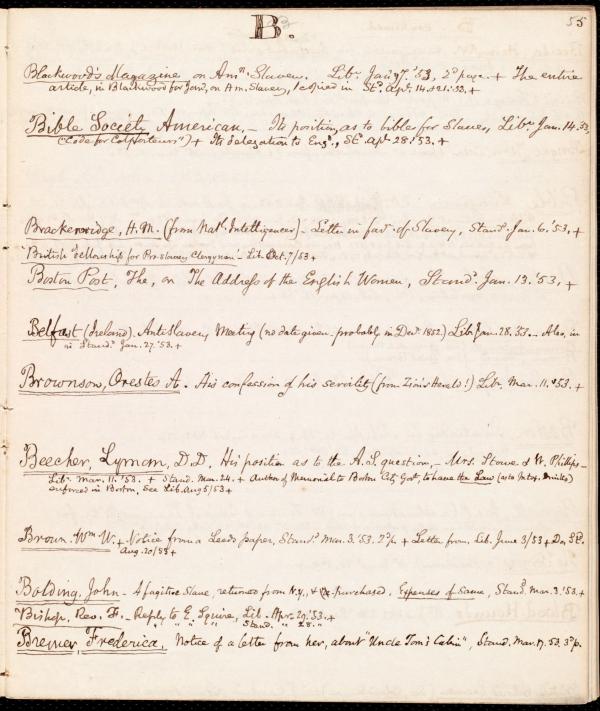 B.
55
Blackwood's Magazine on Amn. Slavery. Libr. Jan. 7. '53, 2d page. + The entire
article, in Blackwood for Jany, on Am. Slavery, copied in Std. Apr. 14 & 21. '53. +
Bible Society, American, – Its position, as to bibles for Slaves, Libr. Jan. 14. '53,
("Code for Colporteurs") + Its delegation to Engd., Std. Apl 28. '53. +
Brackenridge, H. M. (from Natl. Intelligencer) – Letter in favr. of Slavery, Standd. Jan. 6. '53. +
"British Fellowship for Pro-Slavery Clergymen". Lib. Oct. 7/53 +
Boston Post, The, on The Address of the English Women, Standd. Jan. 13. '53. +
Belfast (Ireland). AntiSlavery Meeting (no date given – probably in Decr. 1852) Libr. Jan. 28. '53. – Also, in
in Standd. Jan. 27. '53. +
Brownson, Orestes A. His confession of his servility (from Zion's Herald!) Libr. Mar. 11. '53. +
Beecher, Lyman, D.D. His position as to the A.S. question, – Mrs. Stowe & W. Phillips –
Libr. Mar. 11. '53. + Stand. Mar. 24. + Author of Memorial to Boston City Govt., to have the Law (as to Intox. Drinks)
enforced in Boston, See Lib. Aug 5/53 +
Brown. Wm W. + Notice from a Leeds paper, Standd. Mar. 3. '53. 2d p. + Letter from, Lib. June 3/53 + Do,
Aug. 20/53 +
Bolding, John – A fugitive Slave, returned from N.Y., & purchased. Expenses of Same, Standd. Mar. 3. '53. +
Bishop, Rev. F. – Reply to E. Squire, Lib. Apr. 29. '53. +
" " " " Stand. " 28. "
Bremer, Frederica, Notice of a letter from her, about "Uncle Tom's Cabin", Stand. Mar. 17. 53. 3d p.